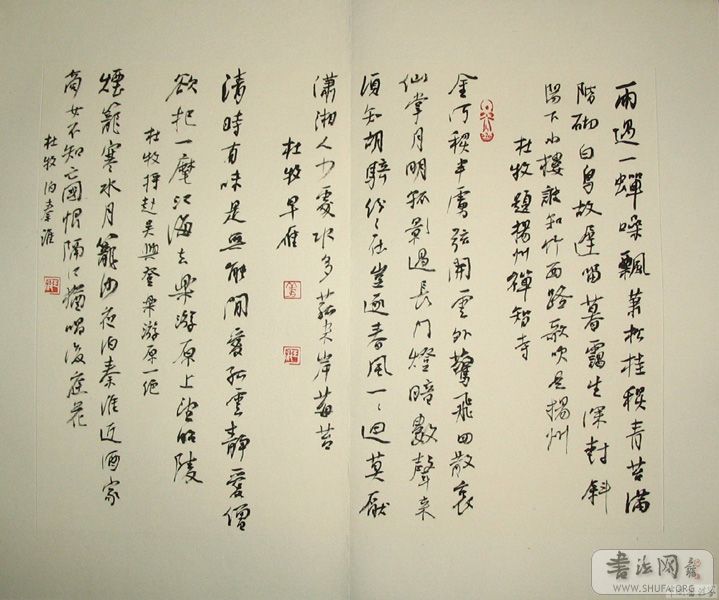 雨過一蟬噪飄蕭松桂秋青苔滿
階砌白鳥故遲留暮靄生深樹斜
陽下小樓誰知竹西路歌吹是揚州
杜牧題揚州禪智寺
金河秋半虜弦開雲外驚飛四散哀
仙掌月明孤影過長門燈暗數聲來
須知胡騎紛々在豈逐春風一々迴莫厭
瀟湘人少處水多菰米岸莓苔
杜牧早雁
清時有味是無能閒愛孤雲靜愛僧
欲把一麾江海去樂游原上望昭陵
杜牧將赴吳興登樂游原一絕
煙籠寒水月籠沙夜泊秦淮近酒家
商女不知亡國恨隔江猶唱後庭花
杜牧泊秦淮
书法网
WWW.SHUFA.ORG